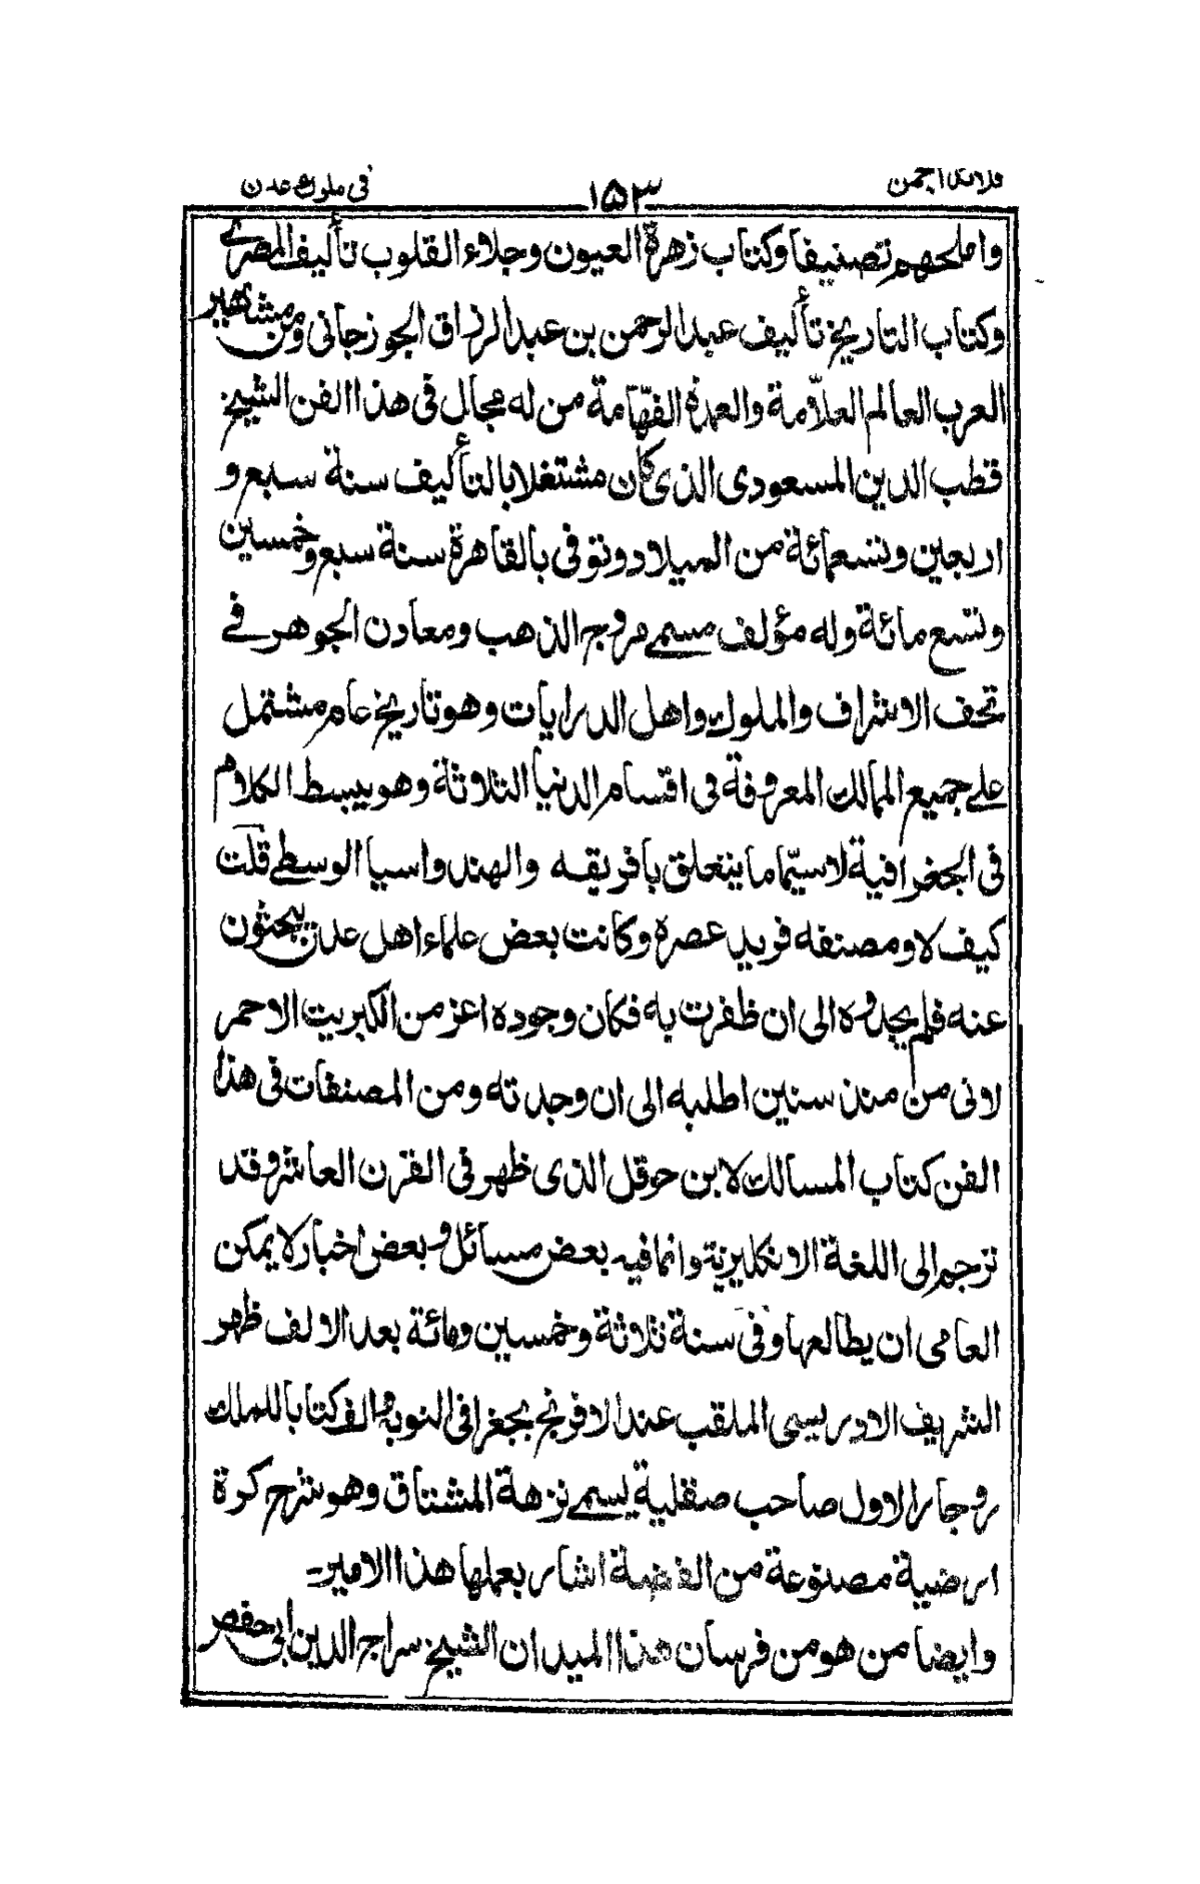 قلائد الجمن ١٥٣ في ملوك عدن
واملحهم تصنيفا وكتاب زهرة العيون وجلاء القلوب تأليف المصرے
وكتاب التاريخ تأليف عبد الرحمن بن عبد الرزاق الجوزجانى ومن مشاهير
العرب العالم العلّامة والعمدة الفهّامة من له مجال فى هذا الفن الشيخ
قطب الدين المسعودى الذى كان مشتغلا بالتأليف سنة سبع و
اربعين وتسعمائة من الميلاد وتوفى بالقاهرة سنة سبع وخمسين
وتسع مائة وله مؤلف مسمے مروج الذهب ومعادن الجوهر فے
تحف الاشراف والملوك واهل الدرايات وهو تاريخ عام مشتمل
علے جميع الممالك المعروفة فى اقسام الدنيا الثلاثة وهو يبسط الكلام
فى الجغرافية لا سيّما ما يتعلق بافريقه والهند واسيا الوسطے قلت
كيف لا ومصنفه فريد عصره وكانت بعض علماء اهل عدن يبحثون
عنه فلم يجدوه الى ان ظفرت به فكان وجوده اعز من الكبريت الاحمر
لانى من منذ سنين اطلبه الى ان وجدته ومن المصنفات فى هذا
الفن كتاب المسالك لابن حوقل الذى ظهر فى القرن العاشر وقد
ترجم الى اللغة الانكليزية وانما فيه بعض مسائل وبعض اخبار لا يمكن
العامى ان يطالعها وفى سنة ثلاثة وخمسين ومائة بعد الالف ظهر
الشريف الادريسى الملقب عند الافرنج بجغرافى النوبه والف كتابا للملك
روجار الاول صاحب صقلية يسمے نزهة المشتاق وهو شرح كرة
ارضية مصنوعة من الفضة اشار بعملها هذا الامير۔
وايضا من هو من فرسان هذا الميدان الشيخ سراج الدين ابى حفص